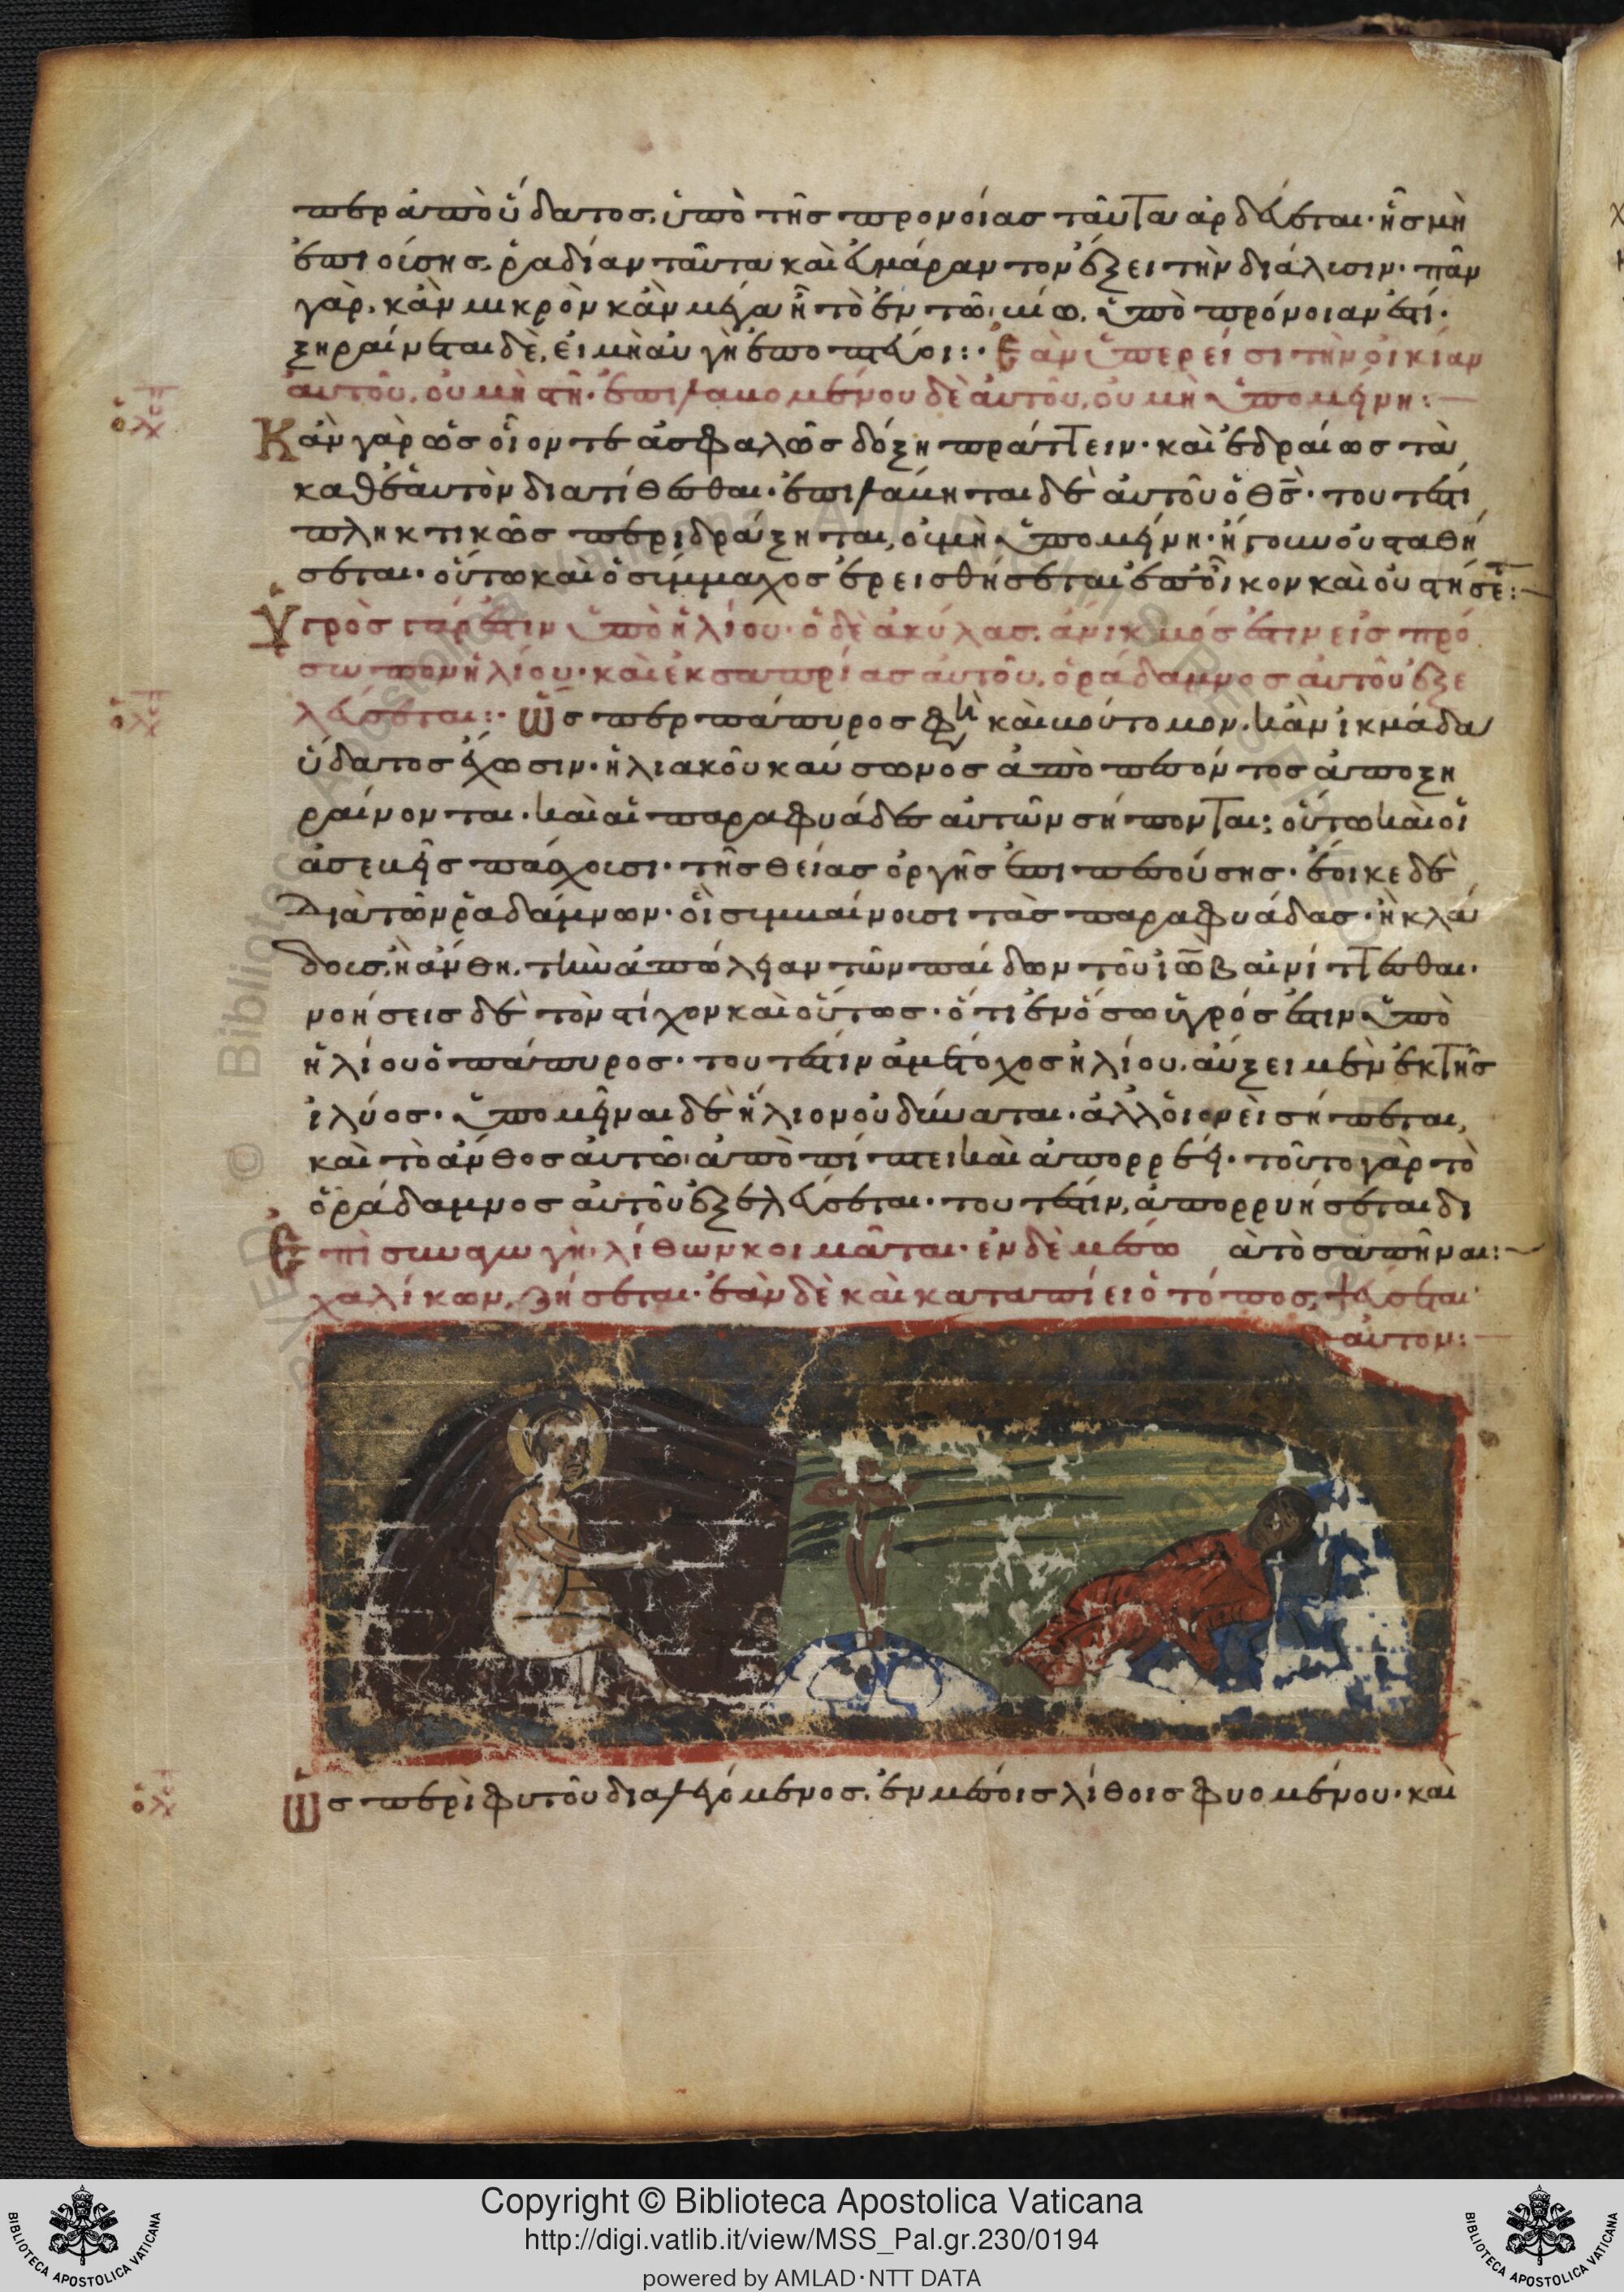 περ ἀπὸ ὕδατος, ὑπὸ τῆς προνοίας ταῦτα ἀρδεύεται· ἧς μὴ
ἐποίσης, ῥαδίαν ταῦτα καὶ εὐμάραντον ἕξει τὴν διάλυσιν· πᾶν
γὰρ, κἂν μικρὸν κἂν μέγα ἦ τὸ ἐν τῶ, ὑπὸ πρόνοιαν ἐστί·
ξηραίνεται δὲ, εἰ μὴ αὐγὴ ἐποπτεύοι:· Ἐὰν ὑπερείσι τὴν οἰκίαν
αὐτοῦ, οὐ μὴ στῆ· ἐπιλαμομένου δὲ αὐτοῦ, οὐ μὴ ὑπομείνη:
Κἂν γὰρ ὡς οἷον τε ἀσφαλῶς δόξη πράττειν· καὶ ἑδραίως τὰ
καθ' ἑαυτὸν διατίθεσθαι· ἐπιλάμηται δὲ αὐτοῦ ὁ θς· τουτέστι
πληκτικῶς περιδράξηται, οὐ μὴ ὑπομείνη· ἤγουν οὐ σταθή
σεται· οὕτω καὶ ὁ σύμμαχος ἐρεισθήσεται ἐπ' οἶκον καὶ οὐ στήσε:
Ὑγρὸς γάρ ἐστιν ὑπὸ ἡλίου· ὁ δὲ ἀκύλας, ἄνικμός ἐστιν εἰς πρό
σωπον ἡλίου· καὶ ἐκ σαπρίας αὐτοῦ, ὁ ράδαμνος αὐτοῦ ἐξε
λεύσεται:· Ὥσπερ πάπυρος φη καὶ βούτομον, κἂν ἰκμάδα
ὕδατος ἔχωσιν· ἡλιακοῦ καύσωνος ἀποπεσόντος ἀποξη
ραίνονται· καὶ αἱ παραφυάδες αὐτῶν σήπονται· οὕτω καὶ οἱ
ἀσεβεῖς πάσχουσι· τῆς θείας ὀργῆς ἐπιπεσούσης· ἔοικε δὲ
διὰ τῶν ῥαδάμνων· οἳ σημαίνουσι τὰς παραφυάδας· ἢ κλά
δους, ἢ ἄνθη, τὴν ἀπώλειαν τῶν παίδων τοῦ ἰὼβ αἰνίττεσθαι·
νοήσεις δὲ τὸν στίχον καὶ οὕτως· ὅτι ἐν ὅσω ὑγρός ἐστιν ὑπὸ
ἡλίου ὁ πάπυρος· τουτέστιν ἀμέτοχος ἡλίου, αὔξει μὲν ἐκ τῆς
ἰλύος· ὑπομεῖναι δὲ ἥλιον οὐ δύναται· ἀλλ' οἱονεὶ σήπεται,
καὶ τὸ ἄνθος αὐτῶ ἀποπίπτει καὶ ἀπορρεῖ· τοῦτο γὰρ τὸ
ὁ ράδαμνος αὐτοῦ ἐξελεύσεται· τουτέστιν, ἀπορρυήσεται δι
ὰ τὸ σαπῆναι:
Ἐπὶ συναγωγὴ λίθων κοιμᾶται· ἐν δὲ μέσω
χαλίκων, ζήσεται· ἐὰν δὲ καὶ καταπίει ὁ τόπος, ψεύσεται
αὐτον:
Ὡς περὶ φυτοῦ διαλεγόμενος, ἐν μέσοις λίθοις φυομένου· καὶ
Copyright © Biblioteca Apostolica Vaticana
http://digi.vatlib.it/view/MSS_Pal.gr.230/0194
powered by AMLAD·NTT DATA
BIBLIOTECA APOSTOLICA VATICANA
BIBLIOTECA APOSTOLICA VATICANA